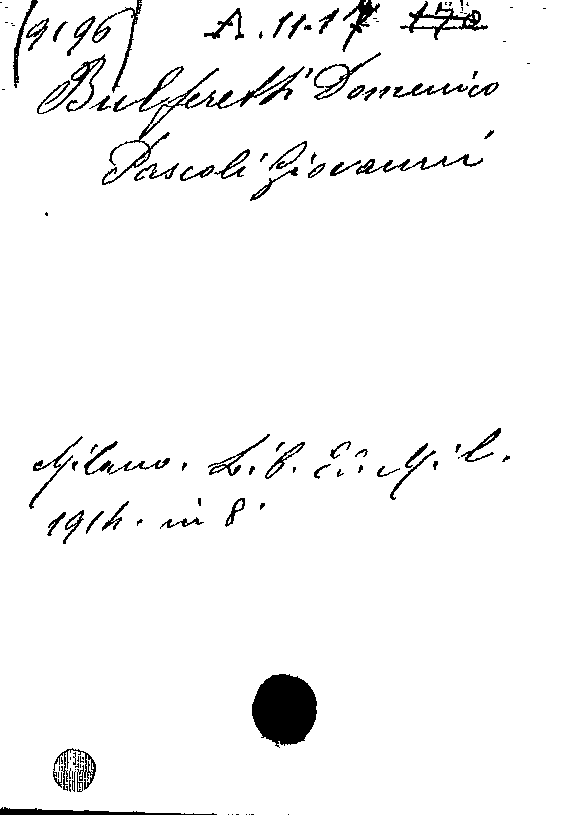 (9196) A.11.17 170
Bulferetti Domenico
Pascoli Giovanni
Milano. Lib. Ed. Mil.
1914. in 8°